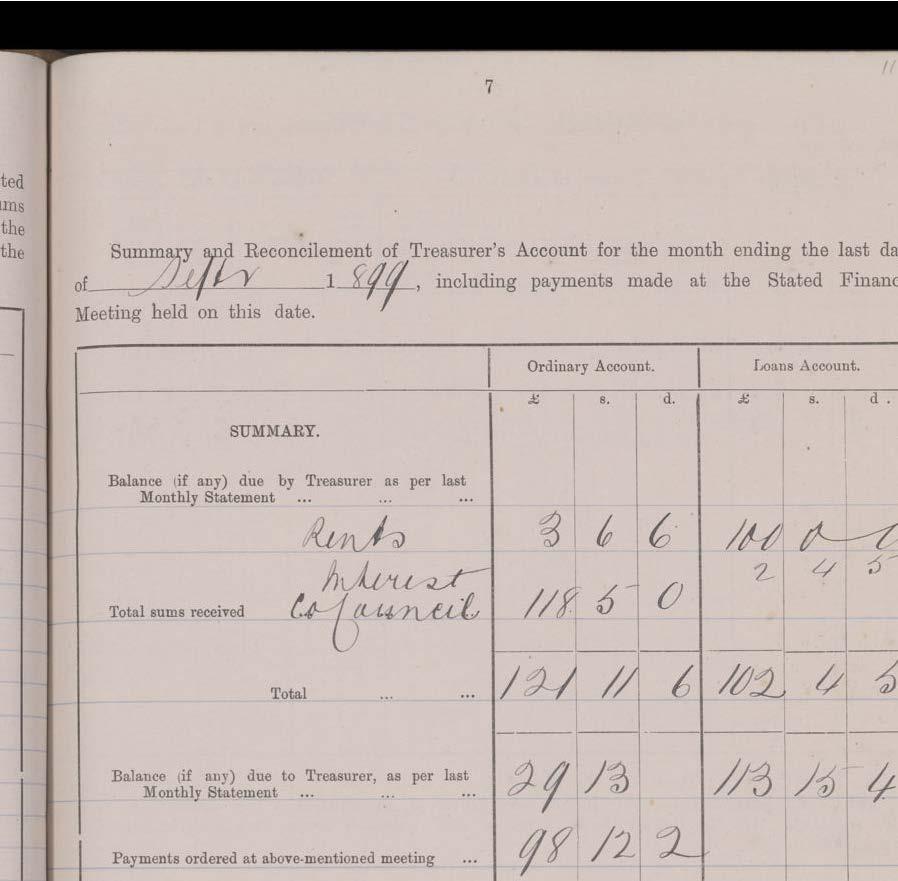 7
11
ted
ums
the
the
Summary and Reconcilement of Treasurer's Account for the month ending the last da
of Septr 1899, including payments made at the Stated Financ
Meeting held on this date.
Ordinary Account. Loans Account.
£ s. d. £ s. d.
SUMMARY.
Balance (if any) due by Treasurer as per last
Monthly Statement ... ... ...
Rents 3 6 6 100 0 0
Interest 2 4 5
Total sums received Co Council 118 5 0
Total ... ... 121 11 6 102 4 5
Balance (if any) due to Treasurer, as per last
Monthly Statement ... ... ... 29 13 113 15 4
Payments ordered at above-mentioned meeting ... 98 12 2